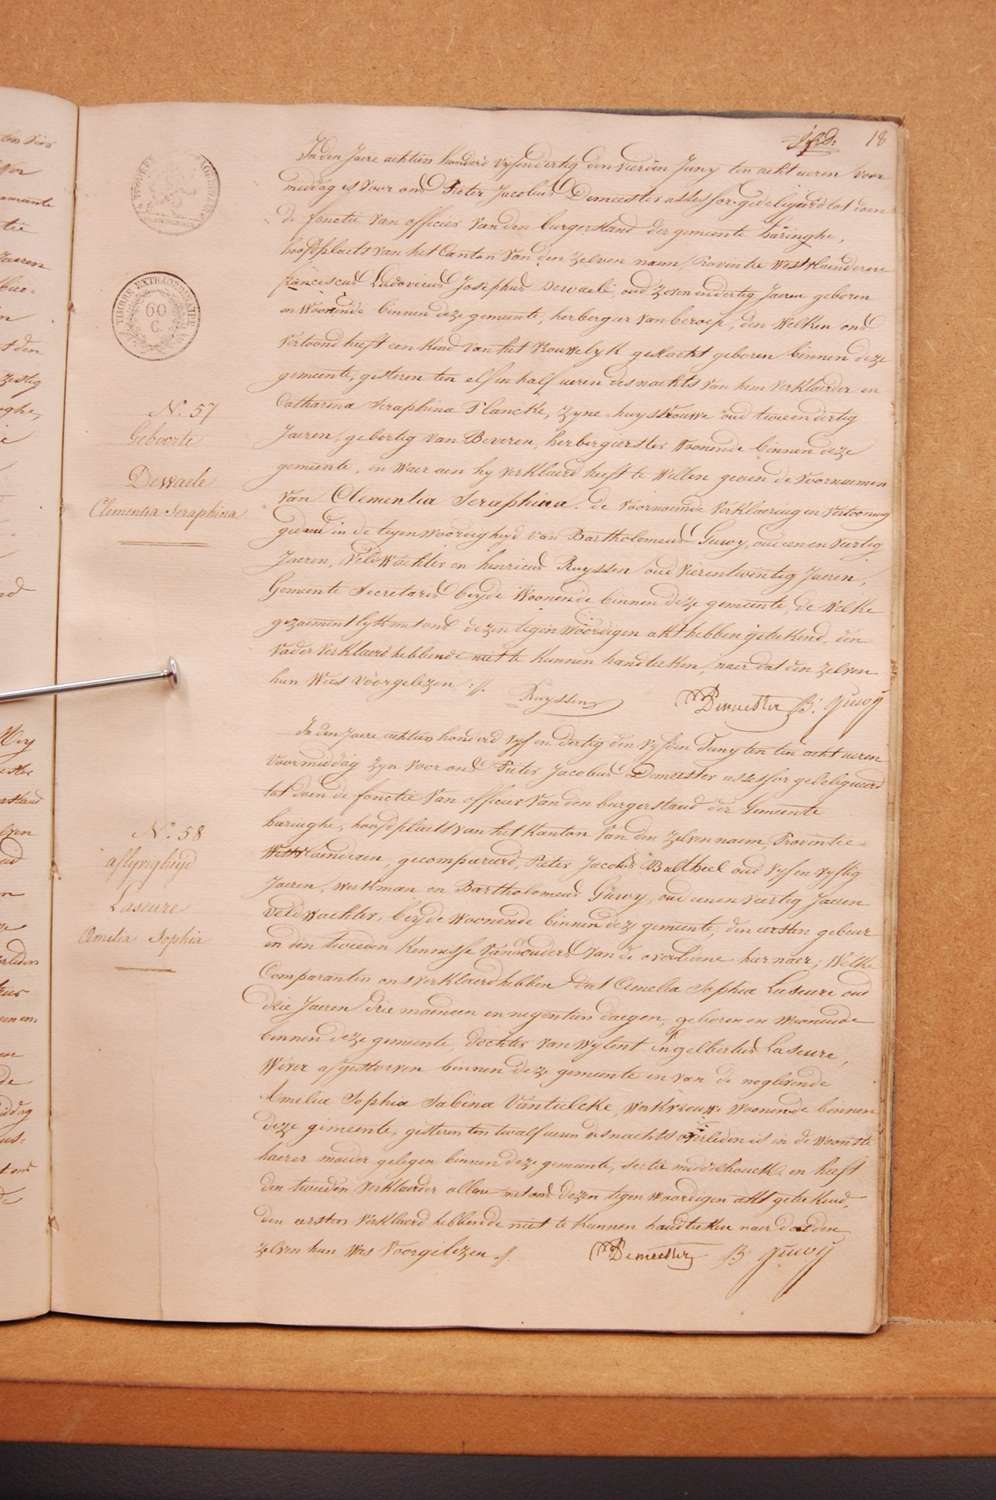 18
In den Jaere achtien honderd vyf en dertig den vierden Juny ten acht ueren voor
middag is voor ons Pieter Jacobus Demeester assessor gedelegueerd tot doen
de fonctie van officier van den burgerstand der gemeente haringhe,
hoofdplaets van het Canton van den zelven naem, Provintie Westvlaenderen
franciscus Ludovicus Josephus Dewaele, oud zeven en dertig Jaeren geboren
en Woonende binnen deze gemeente, herbergier van beroep, den welken ons
vertoond heeft een kind van het vrouwelyk geslacht geboren binnen deze
gemeente, gisteren ten elf en half ueren des nachts van hem verklaerder en
Catharina Seraphina Plancke, zyne huysvrouwe oud twee en dertig
Jaeren, gebortig van Beveren, herbergierster Woonende binnen deze
gemeente, en waer aen hy verklaerd heeft te willen geven de voornaemen
van Clementia Seraphina. de voornoemde verklaering en vertooning
gedaen in de tegenwoordigheyd van Bartholomeus Guwy, oud een en veertig
Jaeren, Veldwachter en henricus Ruyssen oud vier en twentig Jaeren,
Gemeente Secretaris beyde Woonende binnen deze gemeente, de welke
gezaementlyk met ons dezen tegenwoordigen akt hebben geteekend, den
vader verklaerd hebbende niet te kunnen handteeken, naer dat den zelven
hun Wies voorgelezen ./.
Ruyssen Demeester B. Guwy
N.º 57
Geboorte
Dewaele
Clementia Seraphina
TIMBRE EXTRAORDINAIRE
60
C.
In den Jaere achtien honderd vyf en dertig den vyfden Juny ten tien acht ueren
Voormiddag zyn voor ons Pieter Jacobus Demeester assessor gedelegueerd
tot doen de fonctie van officier van den burgerstand der Gemeente
haringhe, hoofdplaets van het Kanton van den zelven naem, Provintie
Westvlaenderen, gecompareerd, Pieter Jacobus Baelbeel oud vyf en vyftig
Jaeren, Werkman en Bartholomeus Guwy, oud een en veertig Jaeren
Veldwachter, beyde woonende binnen deze gemeente, den eersten gebuer
en den tweeden Kennisse van d'ouders van de overledene hier naer; Welke
Comparanten ons verklaerd hebben dat Amelia Sophia Laseure oud
drie Jaeren drie maenden en negentien daegen, geboren en woonende
binnen deze gemeente, dochter van wylent Engelbertus Laseure,
Wever afgestorven binnen deze gemeente en van de naglevende
Amelia Sophia Sabina Vantielcke, werkvrouwe woonende binnen
deze gemeente, gisteren ten twalf ueren des nachts overleden is in de woonste
haerer moeder gelegen binnen deze gemeente, sectie middelhouck en heeft
den tweeden verklaerder alleen met ons dezen tegenwoordigen akt geteekend,
den eersten verklaerd hebbende niet te kunnen handteeken naer dat den
zelven hun Wies Voorgelezen ./.
Demeester B. Guwy
N.º 58
aflyvigheyd
Laseure
Amelia Sophia